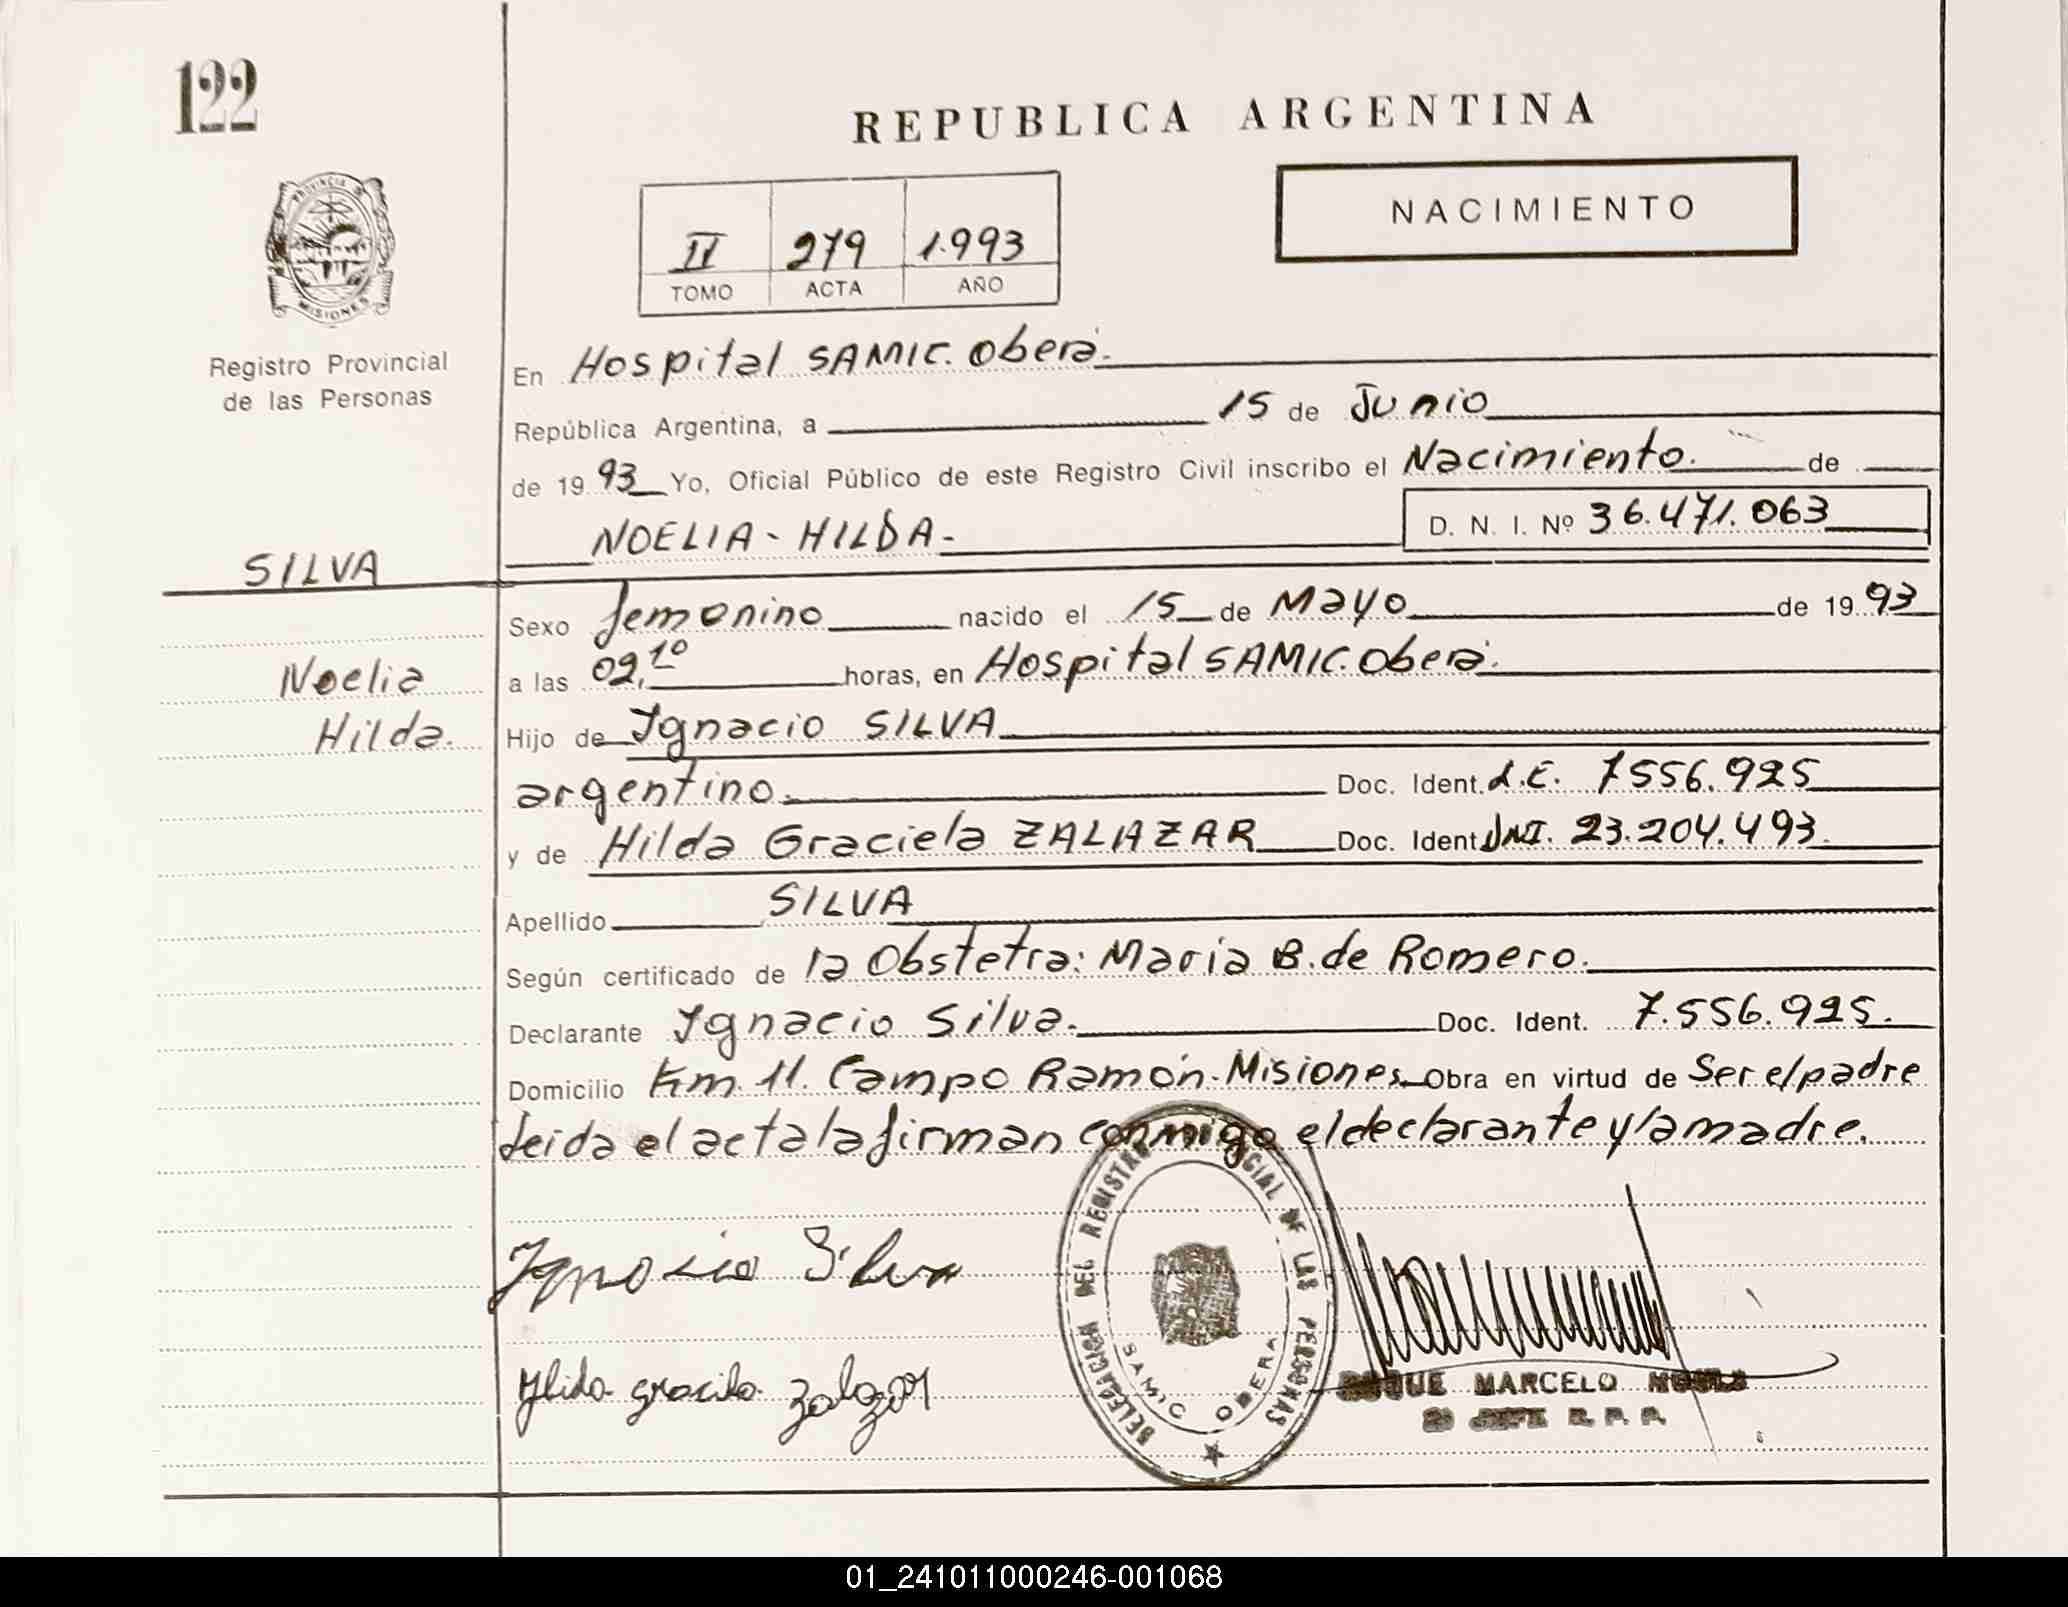 122
REPUBLICA ARGENTINA
NACIMIENTO
II 279 1.993
TOMO ACTA AÑO
PROVINCIA DE MISIONES
Registro Provincial
de las Personas
En Hospital SAMIC. Oberá.
República Argentina, a 15 de Junio
de 1993 Yo, Oficial Público de este Registro Civil inscribo el Nacimiento. de
NOELIA - HILDA - D. N. I. Nº 36.471.063
SILVA
Noelia
Hilda.
Sexo femenino nacido el 15 de Mayo de 1993
a las 09,10 horas, en Hospital SAMIC. Oberá.
Hijo de Ignacio SILVA
argentino. Doc. Ident. L.E. 7556.925
y de Hilda Graciela ZALAZAR Doc. Ident. DNI. 23.204.493.
Apellido SILVA
Según certificado de la Obstetra: Maria B. de Romero.
Declarante Ignacio Silva. Doc. Ident. 7.556.925.
Domicilio Km. 11. Campo Ramón - Misiones Obra en virtud de Ser el padre
Leida el acta la firman conmigo el declarante y la madre.
Ignacio Silva
Hilda graciela zalazar
DELEGACION DEL REGISTRO PROVINCIAL DE LAS PERSONAS
SAMIC OBERA
MARCELO
JEFE R. P. P.
01_241011000246-001068